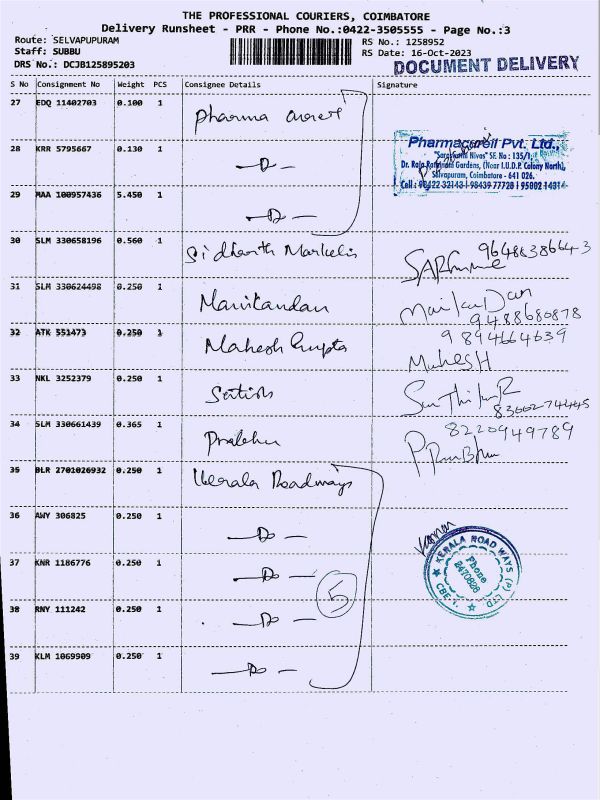 THE PROFESSIONAL COURIERS, COIMBATORE
Delivery Runsheet - PRR - Phone No.:0422-3505555 - Page No.:3
Route: SELVAPUPURAM
RS No.: 1258952
Staff: SUBBU
RS Date: 16-Oct-2023
DRS No.: DCJB125895203
DOCUMENT DELIVERY
S No Consignment No Weight PCS Consignee Details Signature
27 EDQ 11402703 0.100 1 Pharma
28 KRR 5795667 0.130 1 -D-
Pharmacureil Pvt. Ltd.,
"Saraswathi Nivas" SF. No : 135/1,
Dr. Raja Rathinam Gardens, (Near I.U.D.P. Colony North),
Selvapuram, Coimbatore - 641 026.
Cell : 98422 32143 | 98439 77728 | 95002 14314
29 MAA 100957436 5.450 1 -Do-
30 SLM 330658196 0.560 1 Sidharth Marketis 9648838664-3
31 SLM 330624498 0.250 1 Manikandan ManikanDan
9488680878
32 ATK 551473 0.250 1 Mahesh Gupta 9894664639
MukesH
33 NKL 3252379 0.250 1 Satish
34 SLM 330661439 0.365 1 Prabhu 8220949789
P. PraBhu
35 BLR 2701026932 0.250 1 Kerala Roadways
36 AWY 306825 0.250 1 -Do-
37 KNR 1186776 0.250 1 -Do-
KERALA ROAD WAYS (P) LTD
Phone
2470626
CBE-1.
5
38 RNY 111242 0.250 1 -Do-
39 KLM 1069909 0.250 1 -Do-